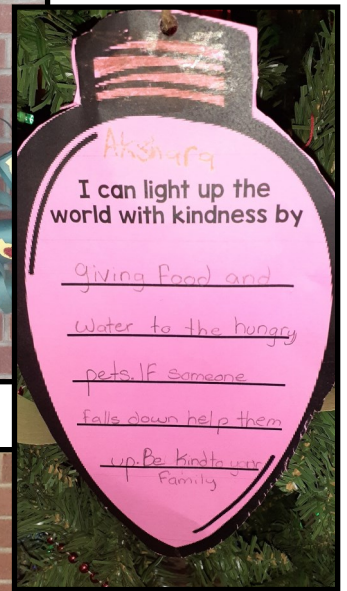 Akshara
I can light up the
world with kindness by
giving food and
water to the hungry
pets. If someone
falls down help them
up. Be kind to your
family